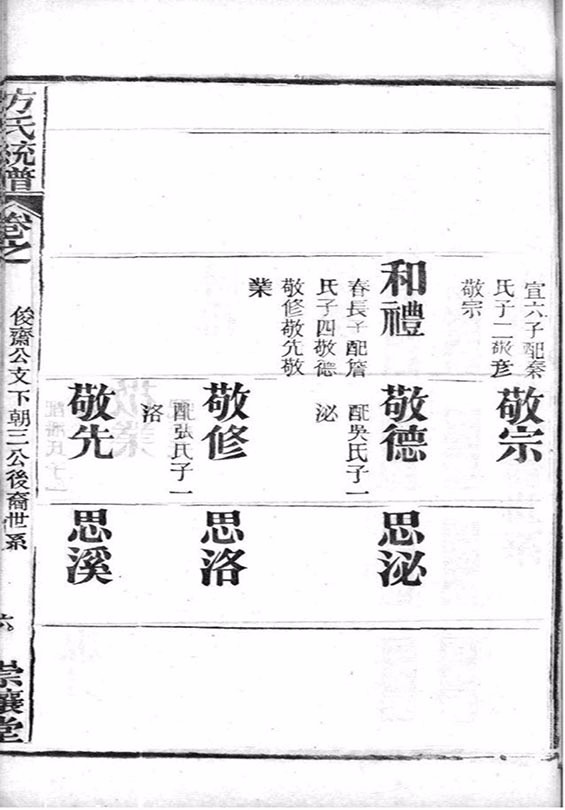 宜六子配秦
氏子二敬彥
敬宗
和禮
春長子配詹
氏子四敬德
敬修敬先敬
業
敬宗
敬德
配吳氏子一
泌
敬修
配張氏子一
洛
敬先
思泌
思洛
思溪
方氏統譜
卷之
俊齋公文下朝三公後裔世系
六
崇讓堂